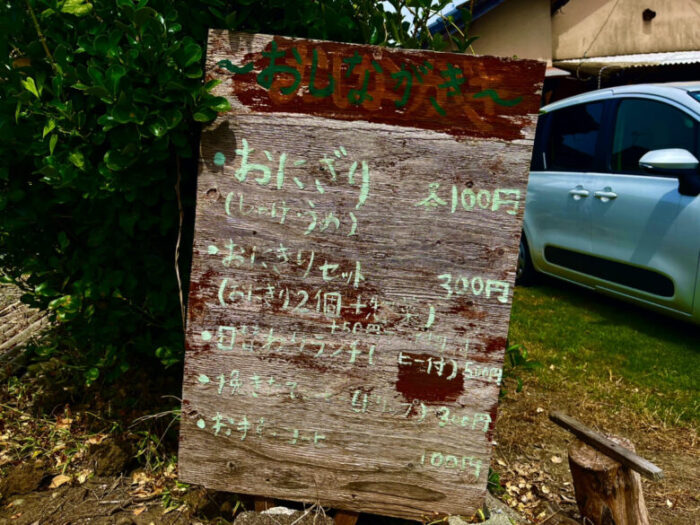 ～おしながき～
・おにぎり 各100円
(しゃけ・うめ)
・おにぎりセット 300円
(おにぎり2個+
+50円
・日替わりランチ( ヒー付) 500円
・焼き (ドリップ) 300円
・お 100円